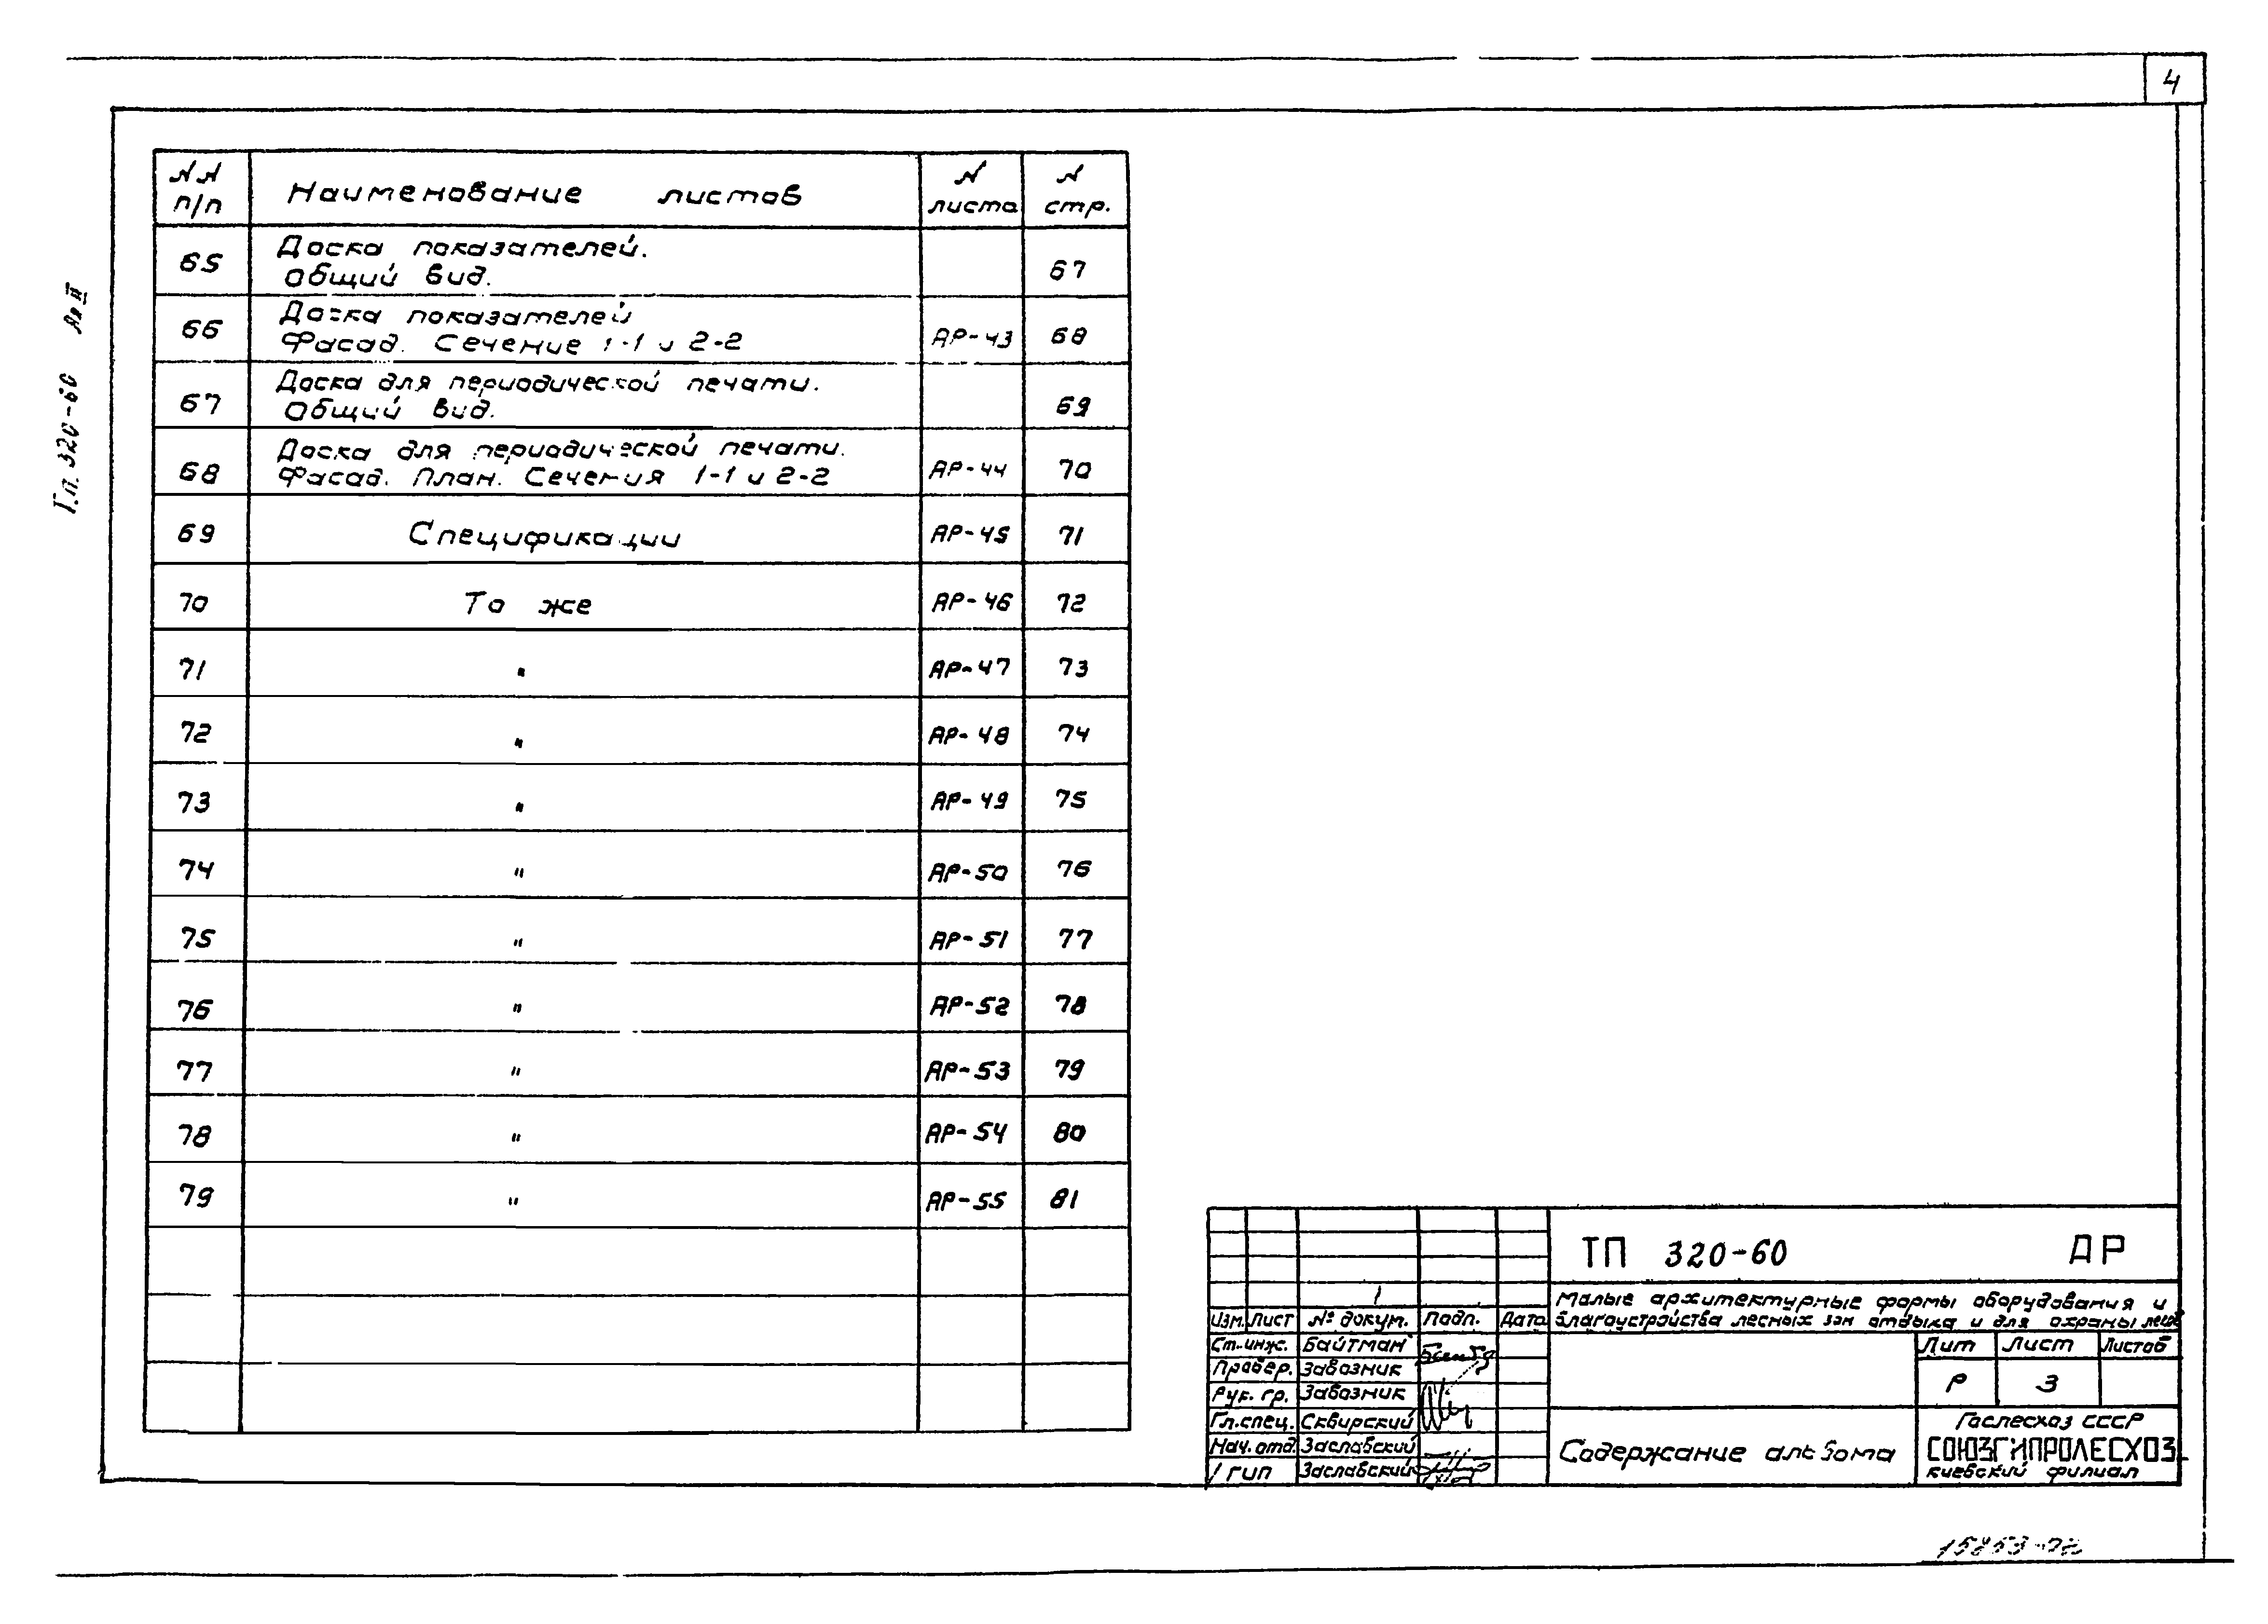 4
Т.п. 320-60 Ал II
NN п/п Наименование листов N листа N стр.
65 Доска показателей. Общий вид. 67
66 Доска показателей Фасад. Сечение 1-1 и 2-2 АР-43 68
67 Доска для периодической печати. Общий вид. 69
68 Доска для периодической печати. Фасад. План. Сечения 1-1 и 2-2 АР-44 70
69 Спецификации АР-45 71
70 То же АР-46 72
71 " АР-47 73
72 " АР-48 74
73 " АР-49 75
74 " АР-50 76
75 " АР-51 77
76 " АР-52 78
77 " АР-53 79
78 " АР-54 80
79 " АР-55 81
ТП 320-60 АР
Малые архитектурные формы оборудования и
благоустройства лесных зон отдыха и для охраны лесов
Изм. Лист № докум. Подп. Дата
Ст.инж. Байтман
Провер. Завозник
Рук. гр. Завозник
Гл.спец. Сквирский
Нач. отд. Заславский
ГИП Заславский
Лит Лист Листов
Р 3
Содержание альбома
Гослесхоз СССР
СОЮЗГИПРОЛЕСХОЗ
киевский филиал